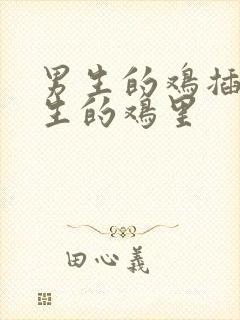 男生的鸡插
生的鸡里
田心義